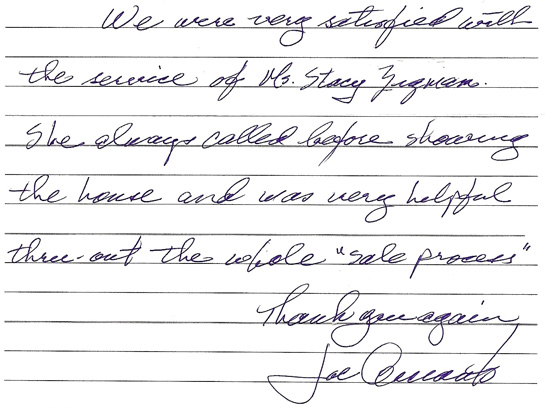 We were very satisfied with
the service of Ms. Stacy Zigman.
She always called before showing
the house and was very helpful
thru-out the whole "sale process"
Thank you again,
Joe